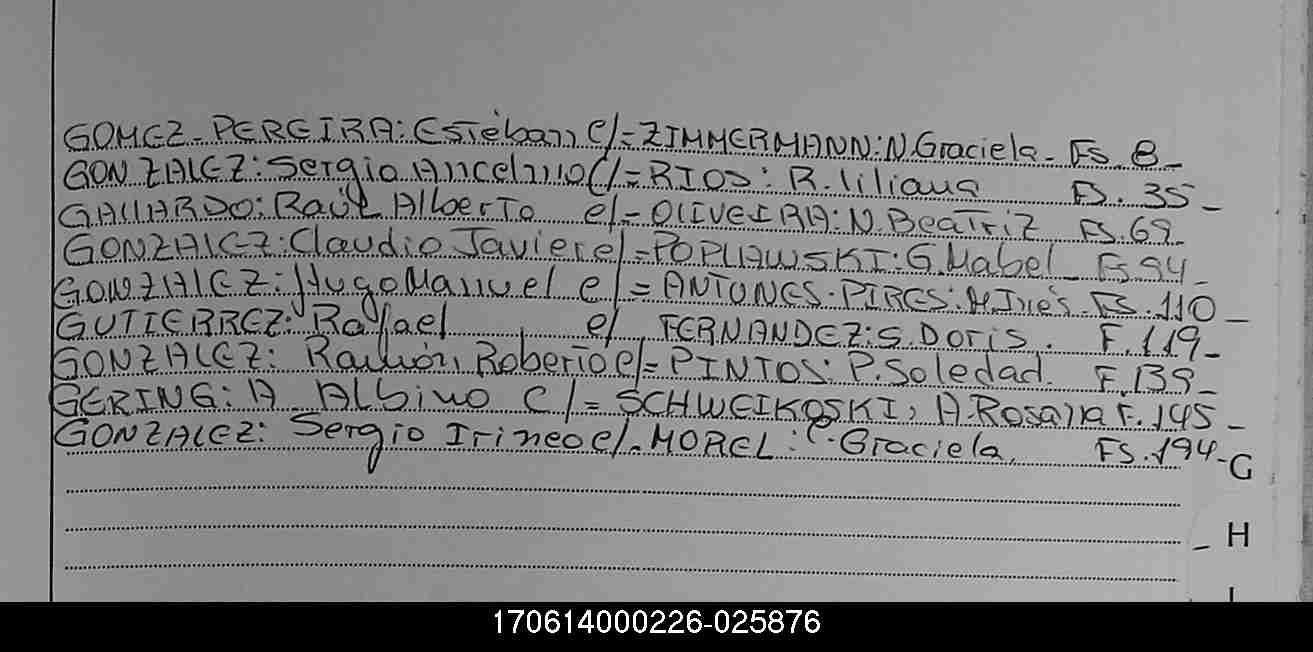 GOMEZ-PEREIRA: Esteban c/=ZIMMERMANN: N. Graciela- Fs. 8-
GONZALEZ: Sergio Ancelmo C/=RIOS: R. liliana Fs. 35-
GALLARDO: Raúl Alberto c/-OLIVEIRA: N. Beatriz Fs. 69-
GONZALEZ: Claudio Javier c/=POPLAWSKI: G. Mabel Fs. 94-
GONZALEZ: Hugo Manuel c/=ANTUNES-PIRES: M. Inés. Fs. 110-
GUTIERREZ: Rafael c/ FERNANDEZ: S. Doris. F. 119-
GONZALEZ: Ramón, Roberto c/=PINTOS: P. Soledad. F. 139-
GERING: A Albino C/=SCHWEIKOSKI, A. Rosana F. 145-
GONZALEZ: Sergio Irineo c/. MOREL: C. Graciela, Fs. 194-
G
H
I
170614000226-025876